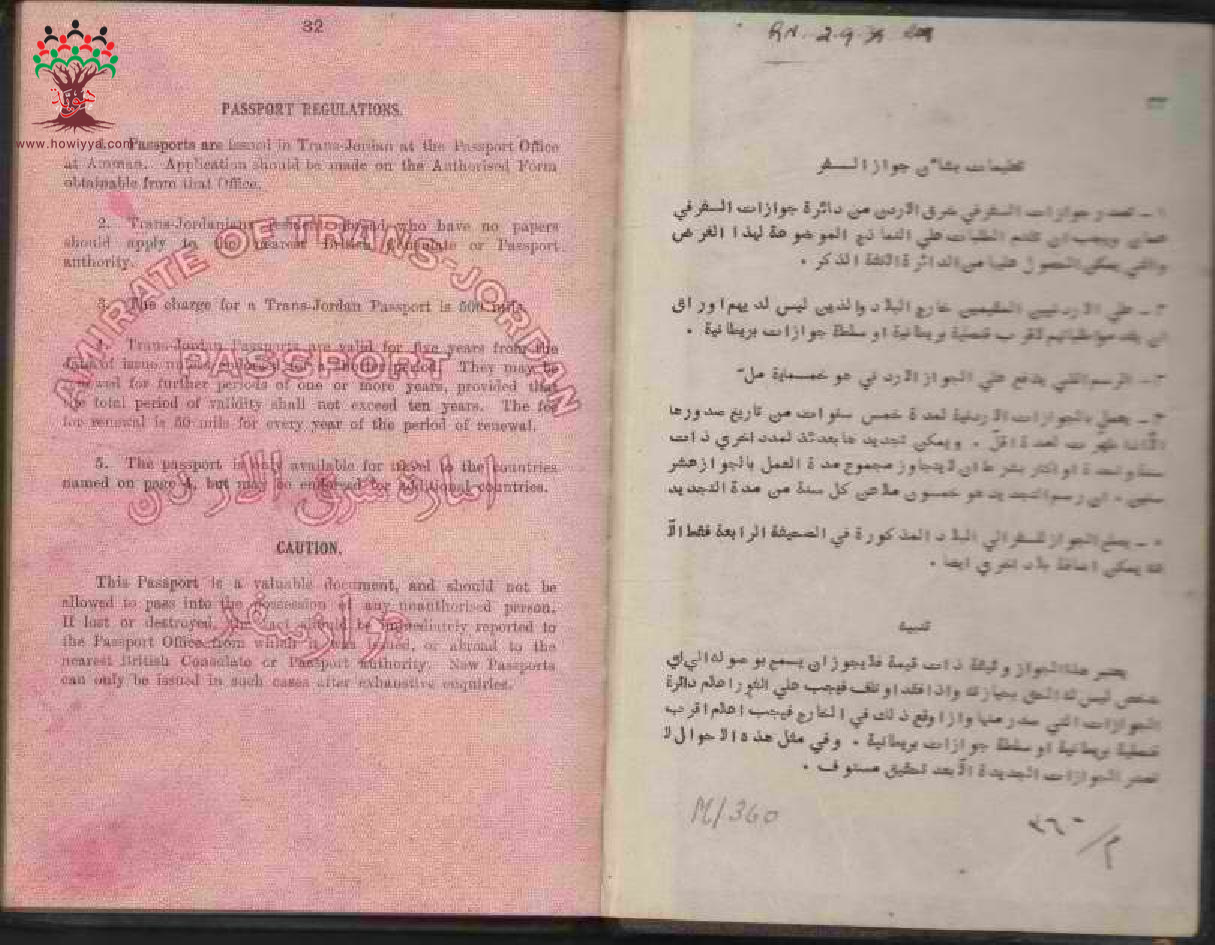 32
www.howiyya.com
PASSPORT REGULATIONS.
Passports are issued in Trans-Jordan at the Passport Office
at Amman. Application should be made on the Authorised Form
obtainable from that Office.
2. Trans-Jordanians abroad who have no papers
should apply to the nearest British Consulate or Passport
authority.
3. The charge for a Trans-Jordan Passport is 500 mils.
4. Trans-Jordan Passports are valid for five years from the
date of issue unless They may be
renewed for further periods of one or more years, provided that
the total period of validity shall not exceed ten years. The fee
for renewal is 50 mils for every year of the period of renewal.
5. The passport is only available for travel to the countries
named on page 4, but may be endorsed for additional countries.
CAUTION.
This Passport is a valuable document, and should not be
allowed to pass into the possession of any unauthorised person.
If lost or destroyed, the fact should be immediately reported to
the Passport Office from which it was issued, or abroad to the
nearest British Consulate or Passport Authority. New Passports
can only be issued in such cases after exhaustive enquiries.
AMIRATE OF TRANS-JORDAN
PASSPORT
امارة شرق الاردن
جواز سفر
R.N. 2.9.
٣٣
تعليمات بشأن جواز السفر
١ - تصدر جوازات السفر في شرق الاردن من دائرة جوازات السفر في
عمان ويجب ان تقدم الطلبات علي النماذج الموضوعة لهذا الغرض
والتي يمكن الحصول عليها من الدائرة الانفة الذكر .
٢ - علي الاردنيين المقيمين خارج البلاد والذين ليس لديهم اوراق
ان يقدموا طلباتهم لاقرب قنصلية بريطانية او سلطة جوازات بريطانية .
٣ - الرسم الذي يدفع علي الجواز الاردني هو خمسماية مل
٤ - يعمل بالجوازات الاردنية لمدة خمس سنوات من تاريخ صدورها
الا اذا لمدة اقل . ويمكن تجديدها بعدئذ لمدد اخري ذات
سنة واحدة او اكثر بشرط ان لا يتجاوز مجموع مدة العمل بالجواز عشر
سنين . ان رسم التجديد هو خمسون ملا عن كل سنة من مدة التجديد
٥ - يصلح الجواز للسفر الي البلاد المذكورة في الصحيفة الرابعة فقط الا
انه يمكن اضافة بلاد اخري ايضا .
تنبيه
يعتبر هذا الجواز وثيقة ذات قيمة فلا يجوز ان يسمح بوصوله الي اي
شخص ليس له الحق بحيازته واذا فقد او تلف فيجب علي الفور اعلام دائرة
الجوازات التي صدر منها واذا وقع ذلك في الخارج فيجب اعلام اقرب
قنصلية بريطانية او سلطة جوازات بريطانية . وفي مثل هذه الاحوال لا
تصدر الجوازات الجديدة الا بعد تحقيق مستوف .
M/360
م/٣٦٠